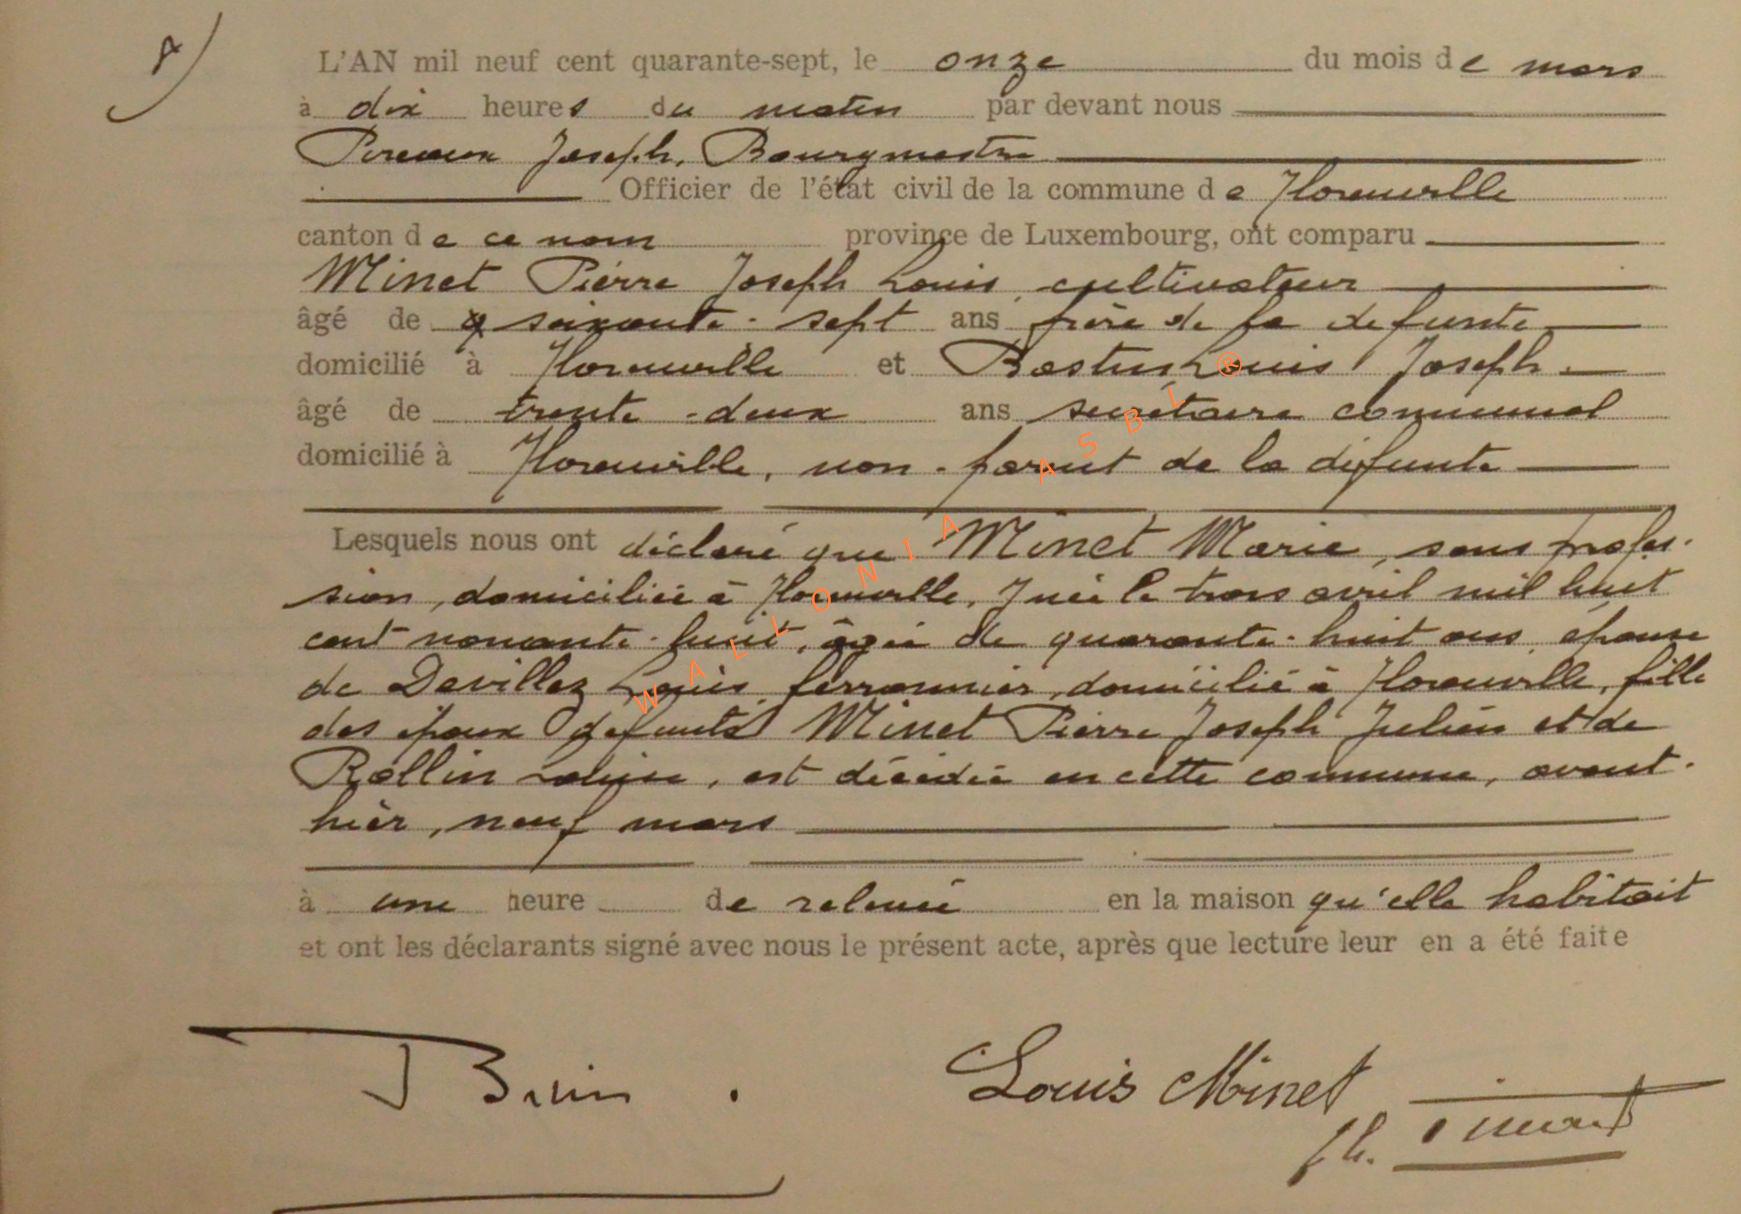 8)
L'AN mil neuf cent quarante-sept, le onze du mois de mars
à dix heures du matin par devant nous
Joseph, Bourgmestre
Officier de l'état civil de la commune de Florenville
canton de ce nom province de Luxembourg, ont comparu
Minet Pierre Joseph Louis, cultivateur
âgé de soixante-sept ans frère de la défunte
domicilié à Florenville et Louis Joseph
âgé de trente-deux ans secrétaire communal
domicilié à Florenville, non-parent de la défunte
Lesquels nous ont déclaré que Minet Marie, sans profes-
sion, domiciliée à Florenville, y née le trois avril mil huit
cent nonante-huit, âgée de quarante-huit ans, épouse
de Devillez Louis, ferronnier, domicilié à Florenville, fille
des époux défunts Minet Pierre Joseph Julien et de
Rollin Louise, est décédée en cette commune, avant-
hier, neuf mars
à une heure de relevée en la maison qu'elle habitait
et ont les déclarants signé avec nous le présent acte, après que lecture leur en a été faite
Louis Minet
WALLONIA ASBL ®